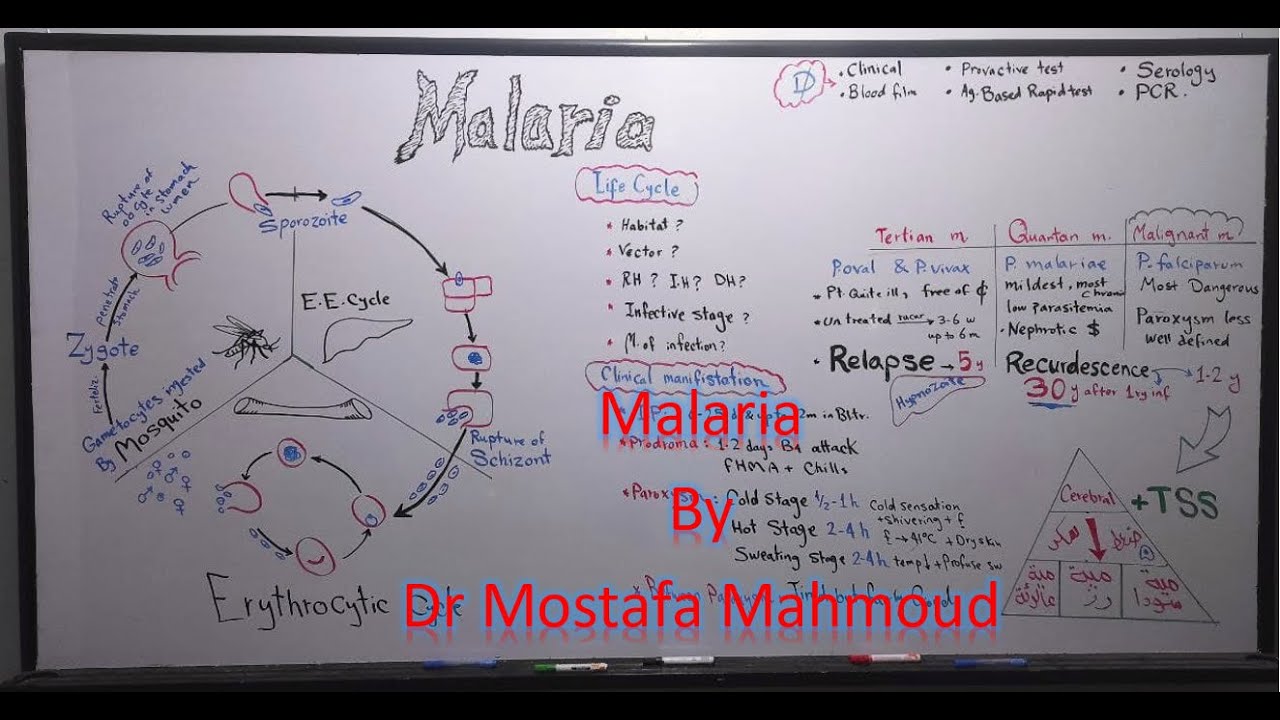 Malaria
D
• Clinical
• Blood film
• Provactive test
• Ag. Based Rapid test
• Serology
• PCR.
Rupture of
oocyte
in stomach
lumen
Sporozoite
penetrate
stomach
Zygote
Fertiliz.
Gametocytes ingested
By Mosquito
E.E.Cycle
Rupture of
Schizont
Erythrocytic Cycle
Life Cycle
* Habitat ?
* Vector ?
* RH ? I.H ? DH ?
* Infective stage ?
* M. of infection ?
Clinical manifistation
2m in Bl tr.
* Prodroma : 1-2 days B4 attack
FHMA + Chills
Cold Stage 1/2-1h Cold sensation
+ shivering + f
Hot Stage 2-4h f → 41°C + Dry skin
Sweating Stage 2-4h temp↓ + Profuse sw
* Between
Tertian m.
P.oval & P.vivax
* Pt. Quite ill, free of
* Un treated → 3-6 w
up to 6m
• Relapse → 5y
Hypnozoite
Quartan m.
P. malariae
mildest, most
chronic
low parasitemia
• Nephrotic $
Recurdescence → 1-2 y
30 y after 1ry inf
Malignant m
P. falciparum
Most Dangerous
Paroxysm less
well defined
Cerebral
+TSS
سكر
ضغط
مية
عالرئة
مية
رز
مية
سودا
Malaria
By
Dr Mostafa Mahmoud